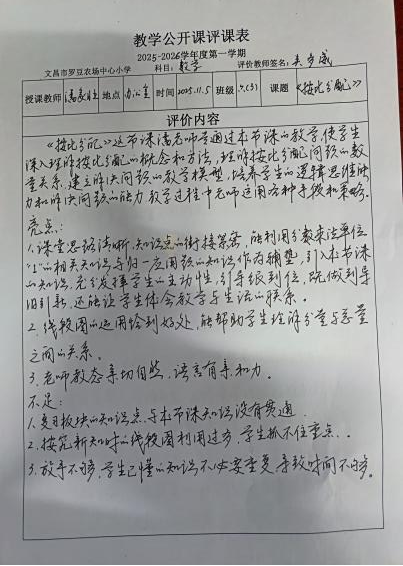 教学公开课评课表
2025-2026学年度第一学期
文昌市罗豆农场中心小学 科目：数学 评价教师签名：
授课教师 地点 办公室 时间 2025.11.5 班级 六(3) 课题 《按比分配》
评价内容
《按比分配》这节课潘老师通过本节课的教学，使学生
深入理解按比分配的概念和方法，理解按比分配问题的数
量关系，建立解决问题的教学模型，培养学生的逻辑思维能
力和解决问题的能力，教学过程中老师运用各种手段和策略。
亮点：
1.课堂思路清晰，知识点的衔接紧密，能利用分数乘法单位
"1"的相关知识与归一应用题的知识作为铺垫，引入本节课
的知识，充分发挥学生的主动性，引导很到位，既做到导
旧引新，还能让学生体会数学与生活的联系。
2.线段图的运用恰到好处，能帮助学生理解分量与总量
之间的关系。
3.老师教态亲切自然，语言有亲和力。
不足：
1.复习板块的知识点与本节课知识没有贯通
2.探究新知时的线段图利用过多，学生抓不住重点。
3.放手不够，学生已懂的知识不必要重复，导致时间不够。